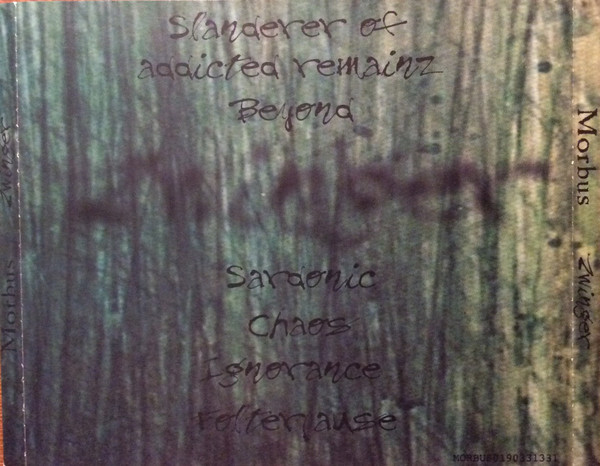 Slanderer of
addicted remainz
Beyond
Sardonic
Chaos
Ignorance
Folterjause
Morbus Zwinger
Morbus Zwinger